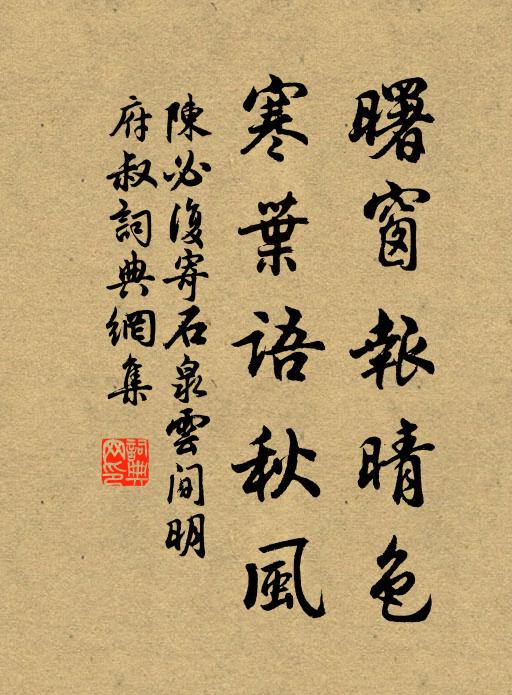 曙窗報晴色
寒葉語秋風
陳必復寄石泉雲间明
府叔詞典網集
詞典
网印